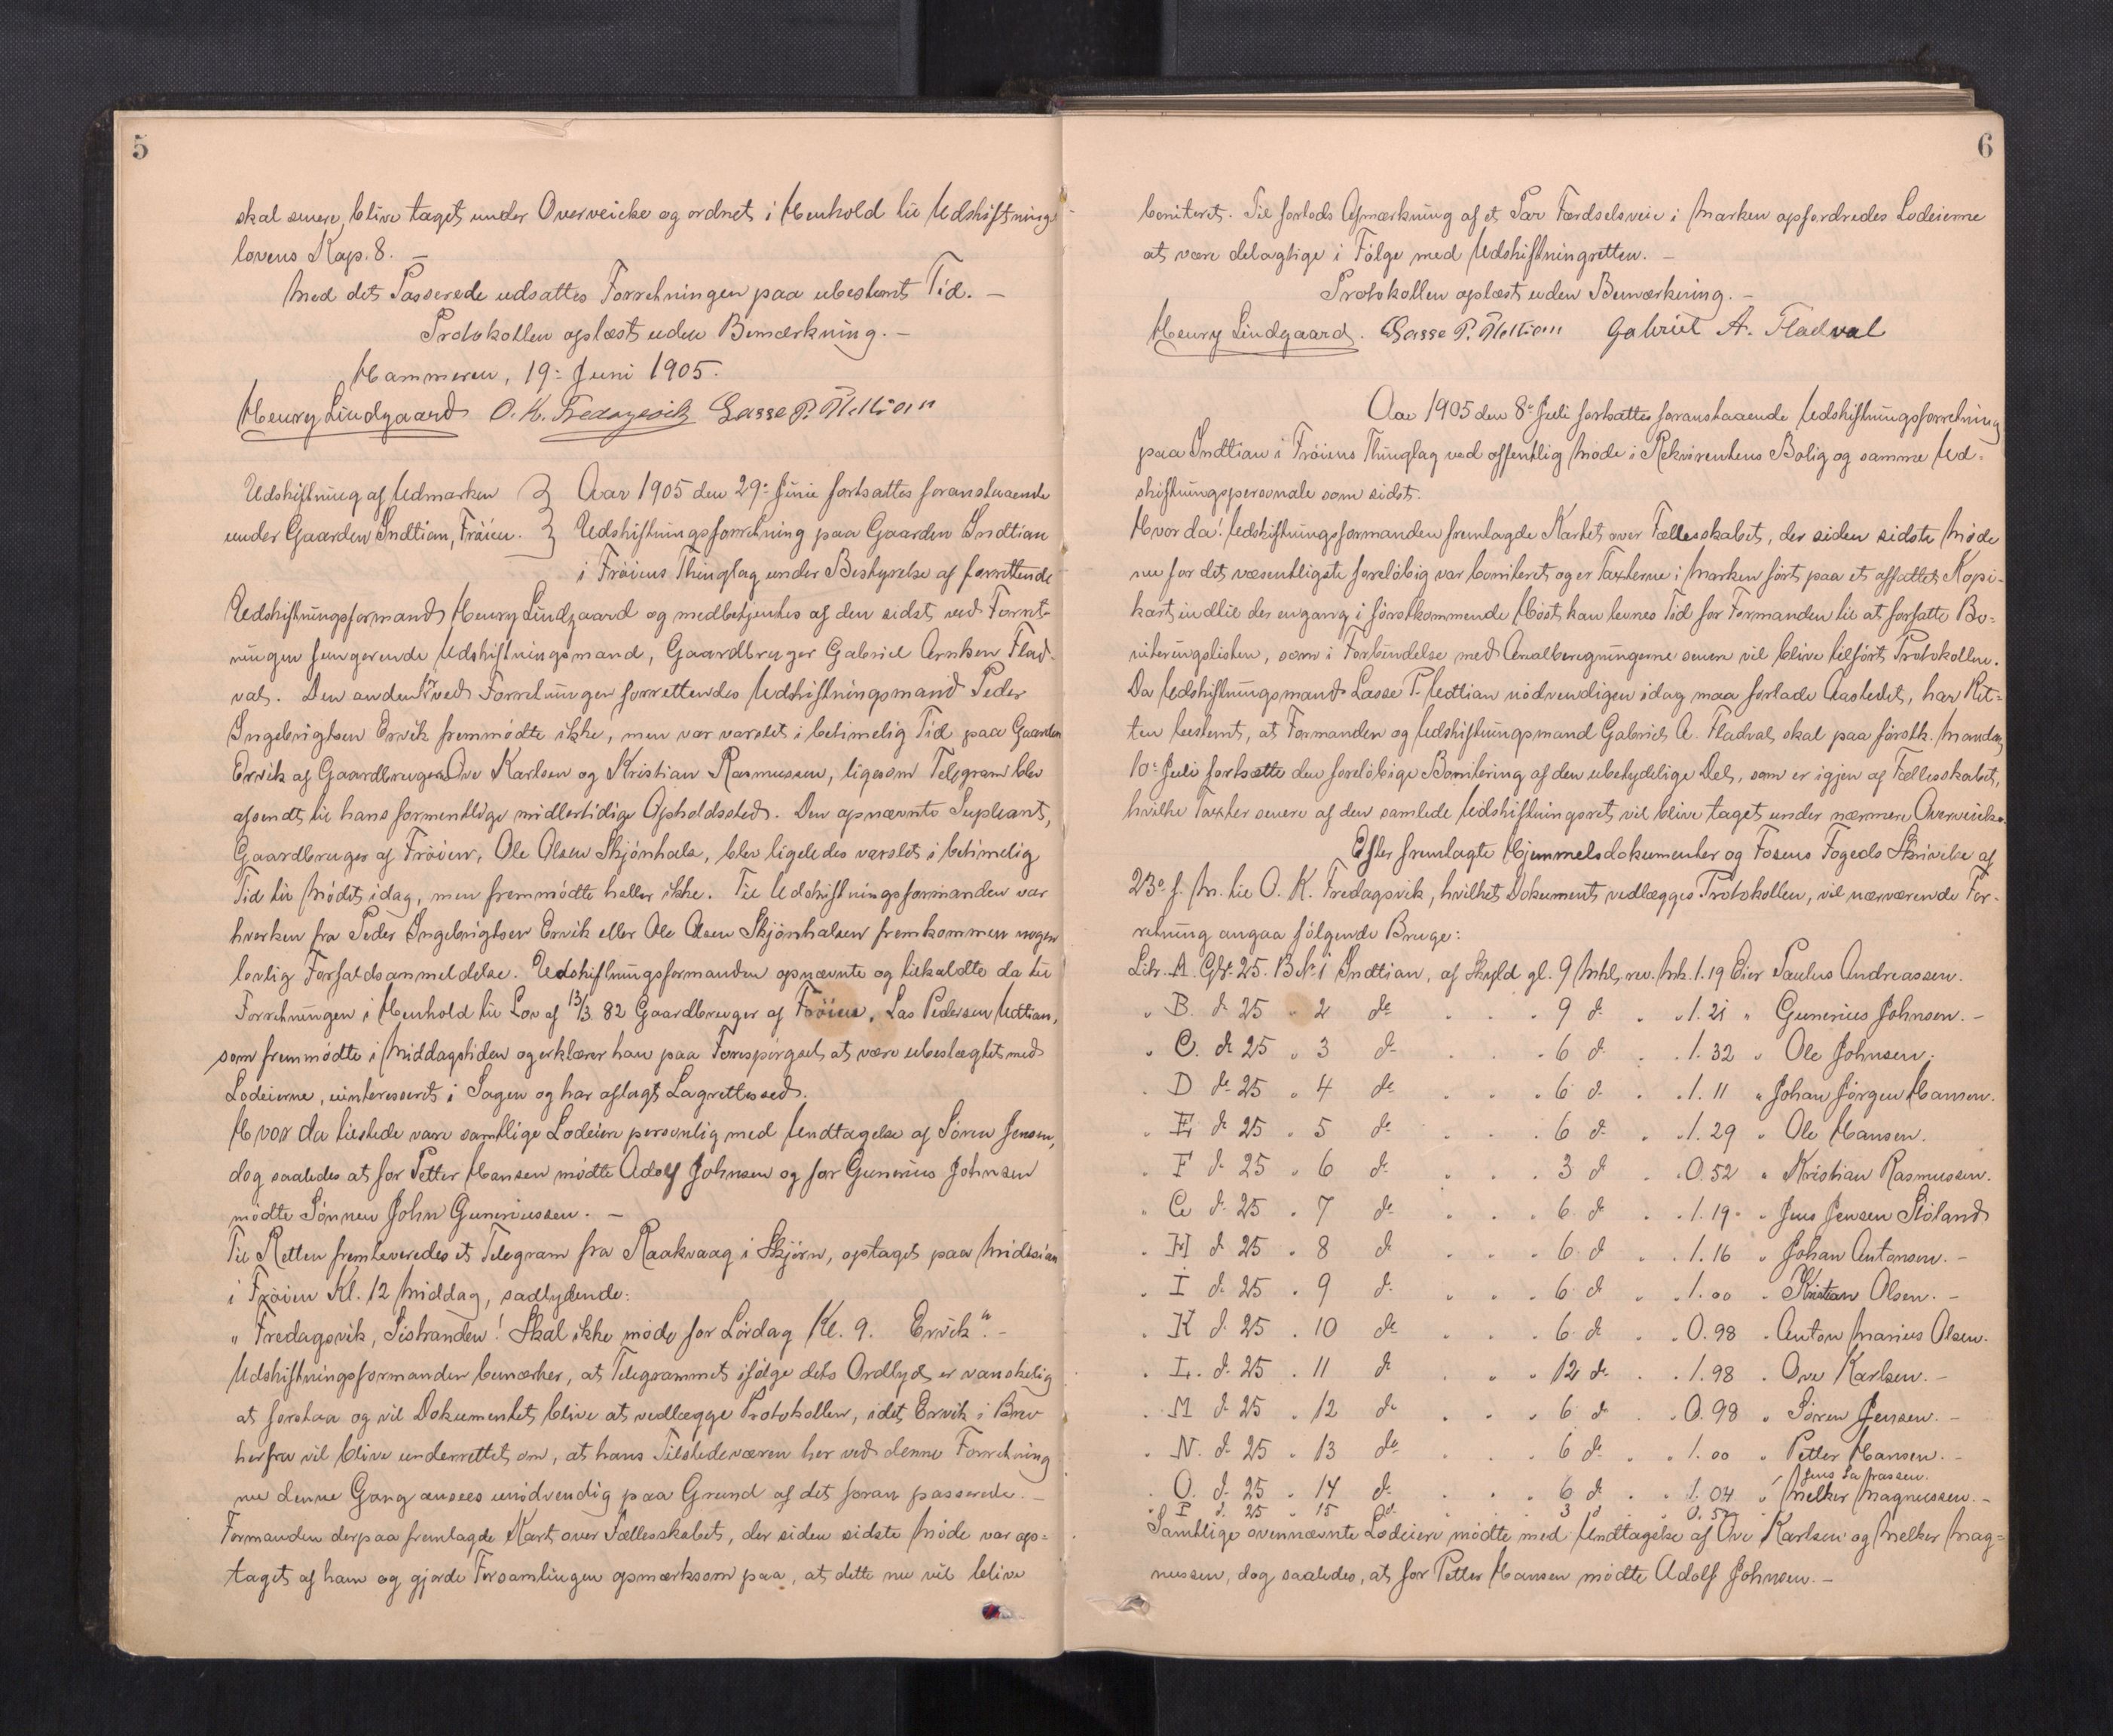 5
skal senere blive taget under Overveielse og ordnet i Henhold til Udskiftnings-
lovens Kap. 8. —
Med det Passerede udsattes Forretningen paa ubestemt Tid. —
Protokollen oplæst uden Bemærkning. —
Hammeren, 19: Juni 1905.
Henry Lindgaard O. K. Fredagsvik Lasse P. Uttian
Udskiftning af Udmarken } Aar 1905 den 29: Juni fortsattes foranstaaende
under Gaarden Indtian, Fröien. } Udskiftningsforretning paa Gaarden Indtian
i Fröiens Thinglag under Bestyrelse af forrettende
Udskiftningsformand Henry Lindgaard og medbetjentes af den sidst ved Forret-
ningen fungerende Udskiftningsmand, Gaardbruger Gabriel Arntsen Flad-
val. Den anden ved Forretningen forrettendes Udskiftningsmand Peder
Ingebrigtsen Ervik fremmödte ikke, men var varslet i betimelig Tid paa Gaarden
Ervik af Gaardbruger Ove Karlsen og Kristian Rasmussen, ligesom Telegram blev
afsendt til hans formentlige midlertidige Opholdssted. Den opnævnte Supleant,
Gaardbruger af Fröien, Ole Olsen Skjönhals, blev ligeledes varslet i betimelig
Tid til Mödet idag, men fremmödte heller ikke. Til Udskiftningsformanden var
hverken fra Peder Ingebrigtsen Ervik eller Ole Olsen Skjönhalsen fremkommen nogen
lovlig Forfaldsanmeldelse. Udskiftningsformanden opnævnte og tilkaldte da til
Forretningen i Henhold til Lov af 13/3 82 Gaardbruger af Fröien, Las Pedersen Uttian,
som fremmödte i Middagstiden og erklærer han paa Forespörgsel at være ubeslægtet med
Lodeierne, uinteresseret i Sagen og har aflagt Lagrettesed.
Hvor da tilstede vare samtlige Lodeiere personlig med Undtagelse af Sören Jensen,
dog saaledes at for Petter Hansen mödte Adolf Johnsen og for Gunerius Johnsen
mödte Sönnen John Guneriussen. —
Til Retten fremleveredes et Telegram fra Raakvaag i Skjörn, optaget paa Midtsian
i Fröien Kl. 12 Middag, saalydende:
„Fredagsvik, Sistranden! Skal ikke möde for Lördag Kl. 9. Ervik". —
Udskiftningsformanden bemærker, at Telegrammet ifölge dets Ordlyd er vanskelig
at forstaa og vil Dokumentet blive at vedlægge Protokollen, idet Ervik i Brev
herfra vil blive underrettet om, at hans Tilstedeværen her ved denne Forretning
nu denne Gang ansees unödvendig paa Grund af det foran passerede. —
Formanden derpaa fremlagde Kart over Fællesskabet, der siden sidste Möde var op-
taget af ham og gjorde Forsamlingen opmærksom paa, at dette nu vil blive
6
boniteret. Til forlods Afmærkning af et Par Færdselsveie i Marken opfordredes Lodeierne
at være delagtige i Fölge med Udskiftningretten. —
Protokollen oplæst uden Bemærkning. —
Henry Lindgaard. Lasse P. Uttian Gabriel A. Fladval
Aar 1905 den 8de Juli fortsattes foranstaaende Udskiftningsforretning
paa Indtian i Fröiens Thinglag ved offentlig Möde i Rekvirentens Bolig og samme Ud-
skiftningspersonale som sidst.
Hvor da! Udskiftningsformanden fremlagde Kartet over Fællesskabet, der siden sidste Möde
nu for det væsentligste foreløbig var boniteret og er Taxterne i Marken fört paa et affattet Kopi-
kart, indtil der engang i förstkommende Höst kan levnes Tid for Formanden til at forfatte Bo-
niteringslisten, som i Forbindelse med Arealberegningerne senere vil blive tilfört Protokollen.
Da Udskiftningsmand Lasse P. Uttian nödvendigen idag maa forlade Aastedet, har Ret-
ten bestemt, at Formanden og Udskiftningsmand Gabriel A. Fladval skal paa förstk. Mandag
10: Juli fortsætte den foreløbige Bonitering af den ubetydelige Del, som er igjen af Fællesskabet,
hvilke Taxter senere af den samlede Udskiftningsret vil blive taget under nærmere Overveielse.
Efter fremlagte Hjemmelsdokumenter og Fosens Fogeds Skrivelse af
23de f. M. til O. K. Fredagsvik, hvilket Dokument vedlægges Protokollen, vil nærværende For-
retning angaa fölgende Bruge:
Litr. A. Gr. 25. BNr. 1 Indtian, af Skyld gl. 9 Mkl, rev. Mk. 1.19 Eier Paulus Andreassen.
„ B. do 25 „ 2 do „ „ „ 9 do „ „ 1.21 „ Gunerius Johnsen. —
„ C. do 25 „ 3 do „ „ „ 6 do „ „ 1.32 „ Ole Johnsen.
„ D do 25 „ 4 do „ „ „ 6 do „ „ 1.11 „ Johan Jörgen Hansen.
„ E do 25 „ 5 do „ „ „ 6 do „ „ 1.29 „ Ole Hansen.
„ F do 25 „ 6 do „ „ „ 3 do „ „ 0.52 „ Kristian Rasmussen.
„ G do 25 „ 7 do „ „ „ 6 do „ „ 1.19 „ Jens Jensen Stöland
„ H do 25 „ 8 do „ „ „ 6 do „ „ 1.16 „ Johan Antonsen. —
„ I do 25 „ 9 do „ „ „ 6 do „ „ 1.00 „ Kristian Olsen. —
„ K do 25 „ 10 do „ „ „ 6 do „ „ 0.98 „ Anton Marius Olsen.
„ L. do 25 „ 11 do „ „ „ 12 do „ „ 1.98 „ Ove Karlsen. —
„ M do 25 „ 12 do „ „ „ 6 do „ „ 0.98 „ Sören Jensen. —
„ N. do 25 „ 13 do „ „ „ 6 do „ „ 1.00 „ Petter Hansen. —
„ O. do 25 „ 14 do „ „ „ 6 do „ „ 1.04 „ Melker Magnussen. —
„ P do 25 „ 15 do „ „ „ 3 do „ „ 0.52
Samtlige ovennævnte Lodeiere mödte med Undtagelse af Ove Karlsen og Melker Mag-
nussen, dog saaledes, at for Petter Hansen mödte Adolf Johnsen. —